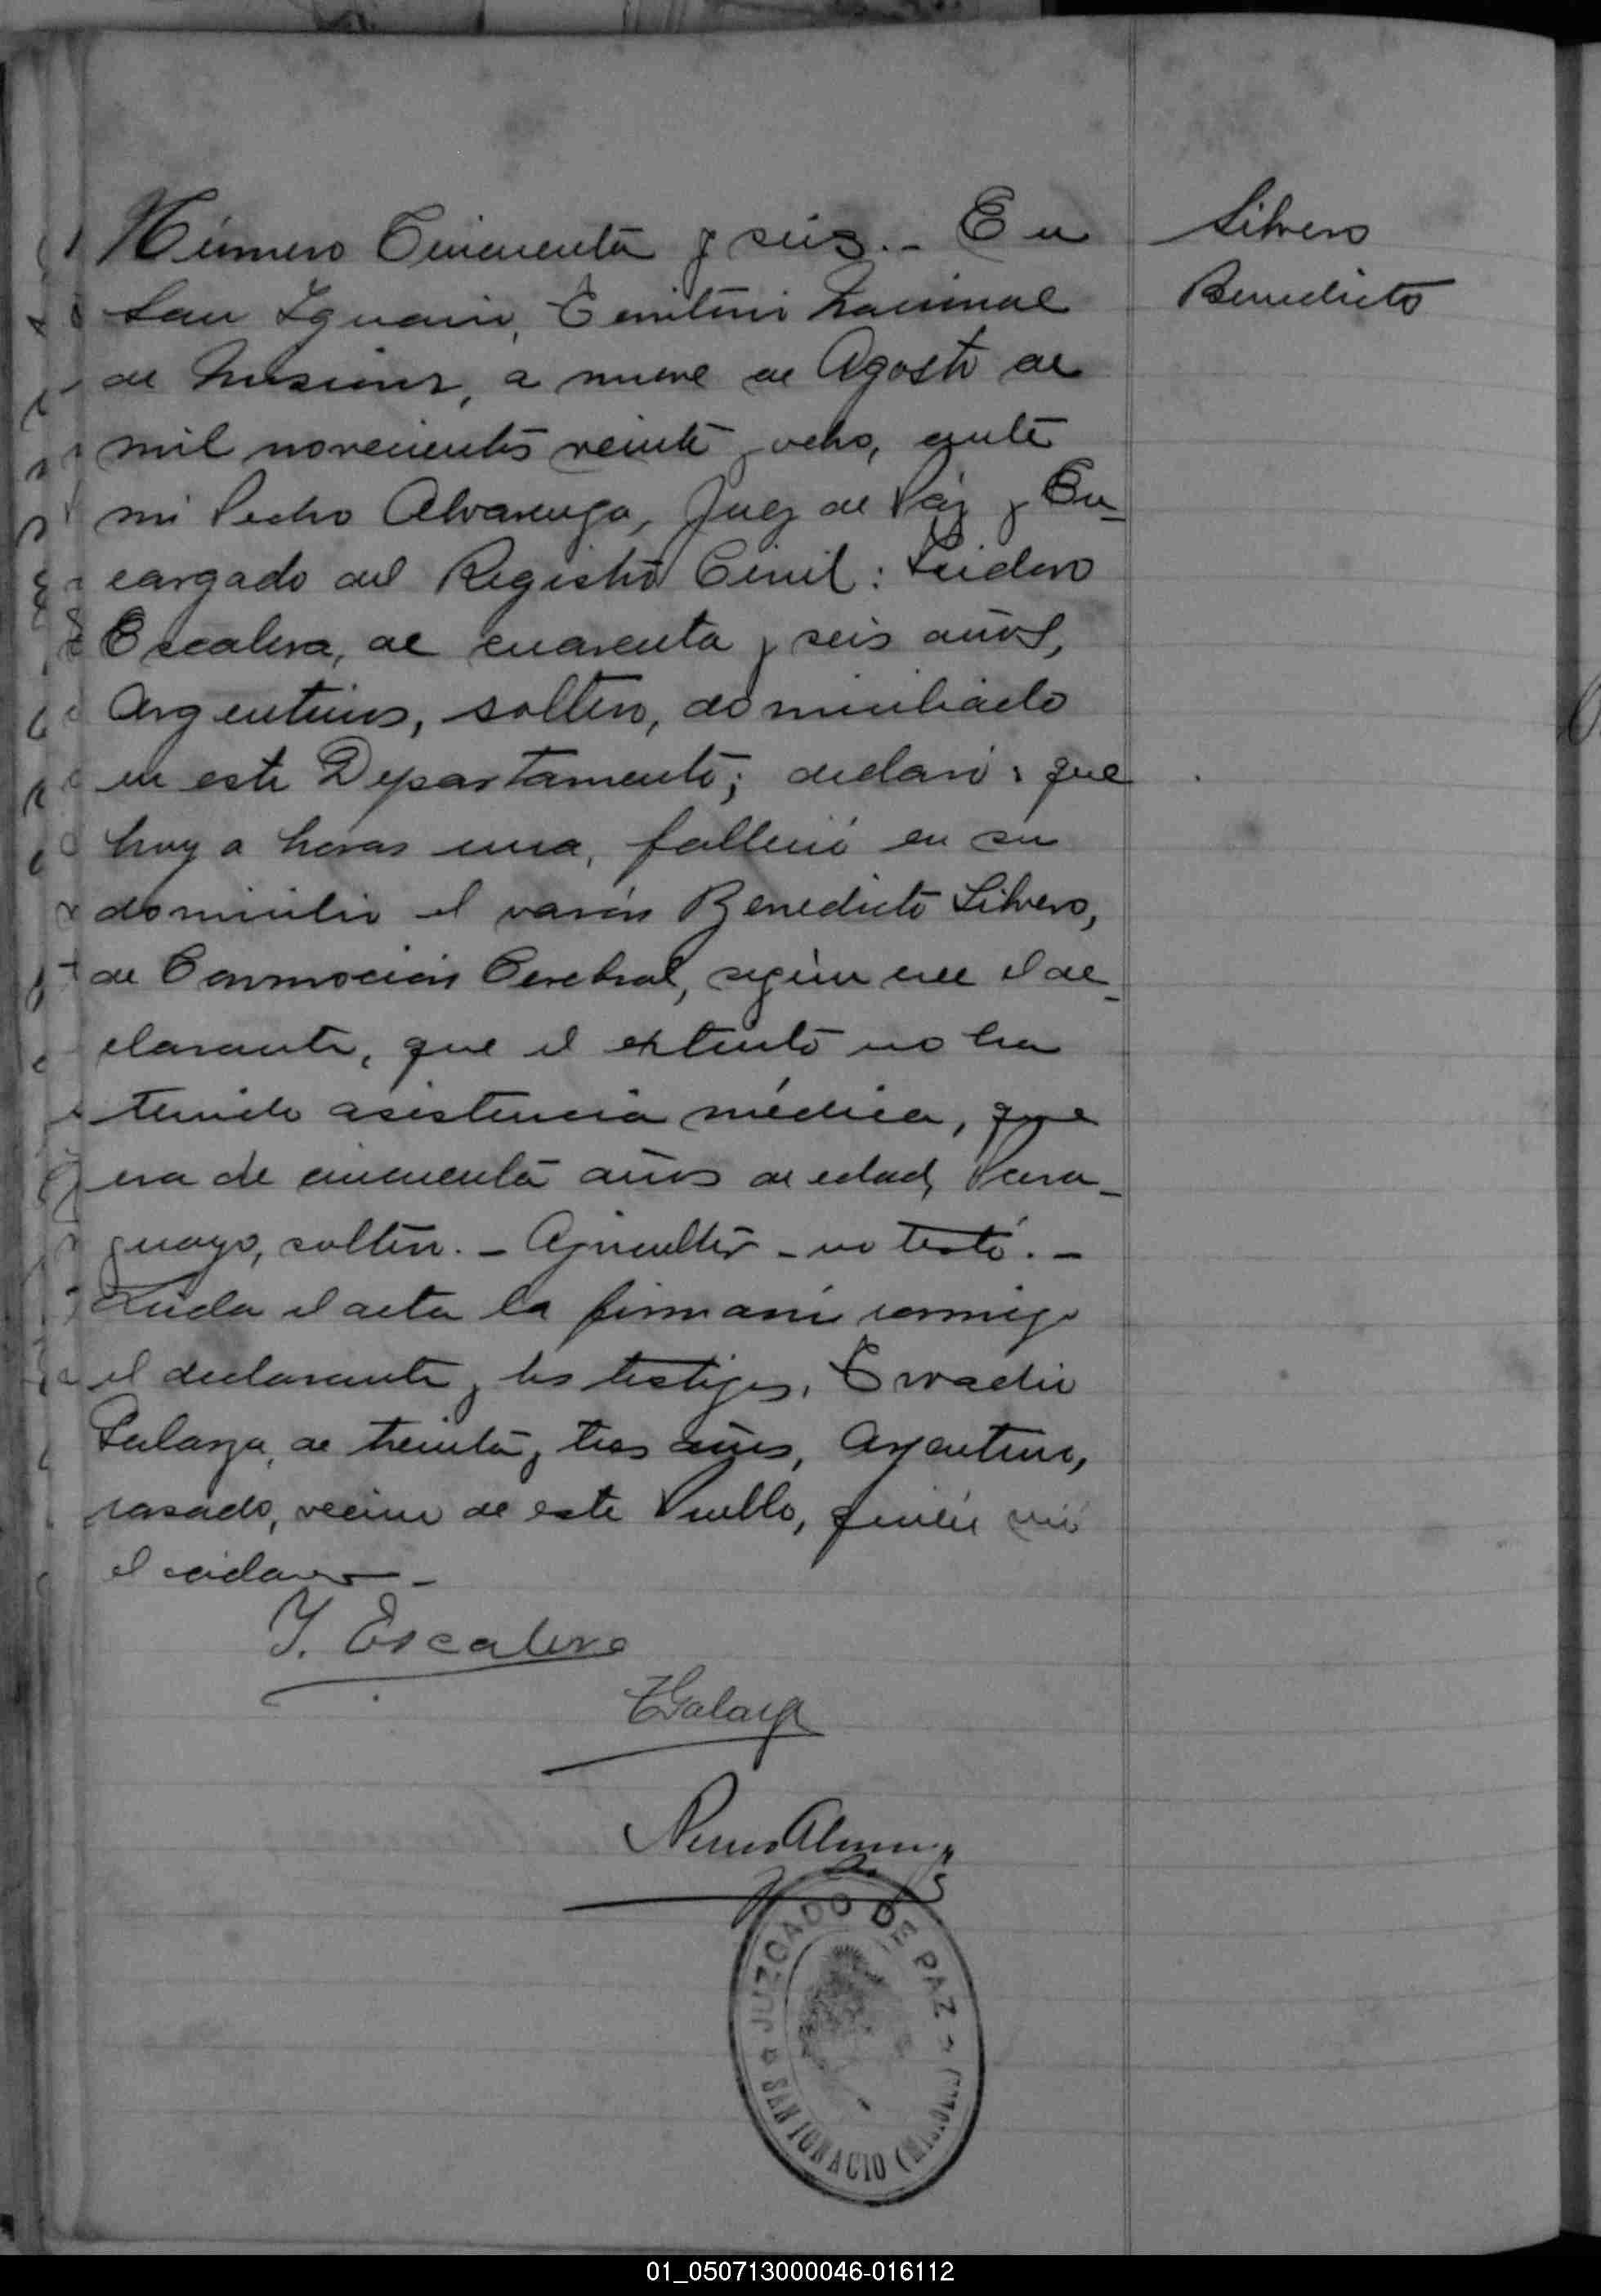 Número Cincuenta y seis.- En
San Ignacio, Territorio Nacional
de Misiones, a nueve de Agosto de
mil novecientos veinte y ocho, ante
mi Pedro Alvarenga, Juez de Paz y En-
cargado del Registro Civil: Isidoro
Escalera, de cuarenta y seis años,
Argentino, soltero, domiciliado
en este Departamento; declaró: que
hoy a horas una, falleció en su
domicilio el varón Benedicto Silvero,
de Conmoción Cerebral, según cree el de-
clarante, que el extinto no ha
tenido asistencia médica, que
era de cincuenta años de edad, Para-
guayo, soltero.- Agricultor - no testó.-
Leida el acta la firmaron conmigo
el declarante y los testigos,
Galarza, de treinta y tres años, Argentino,
casado, vecino de este Pueblo, quién vió
el cadaver-
Y. Escalera
Galarza
JUZGADO DE PAZ
SAN IGNACIO (MISIONES)
Silvero
Benedicto
01_050713000046-016112